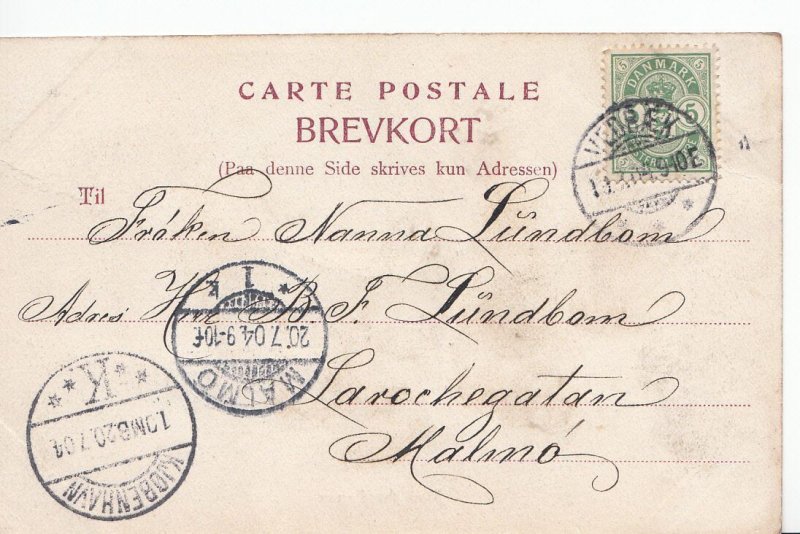 CARTE POSTALE
BREVKORT
(Paa denne Side skrives kun Adressen)
DANMARK
5 5
VEDBÆK
9-10E
Til
Fröken Nanna Lündbom
Adres Herr B F. Lündbom
Larochegatan
Malmö
1
20.7.04.9-10F
MALMÖ
K
1.OMB20.7.04
KJØBENHAVN